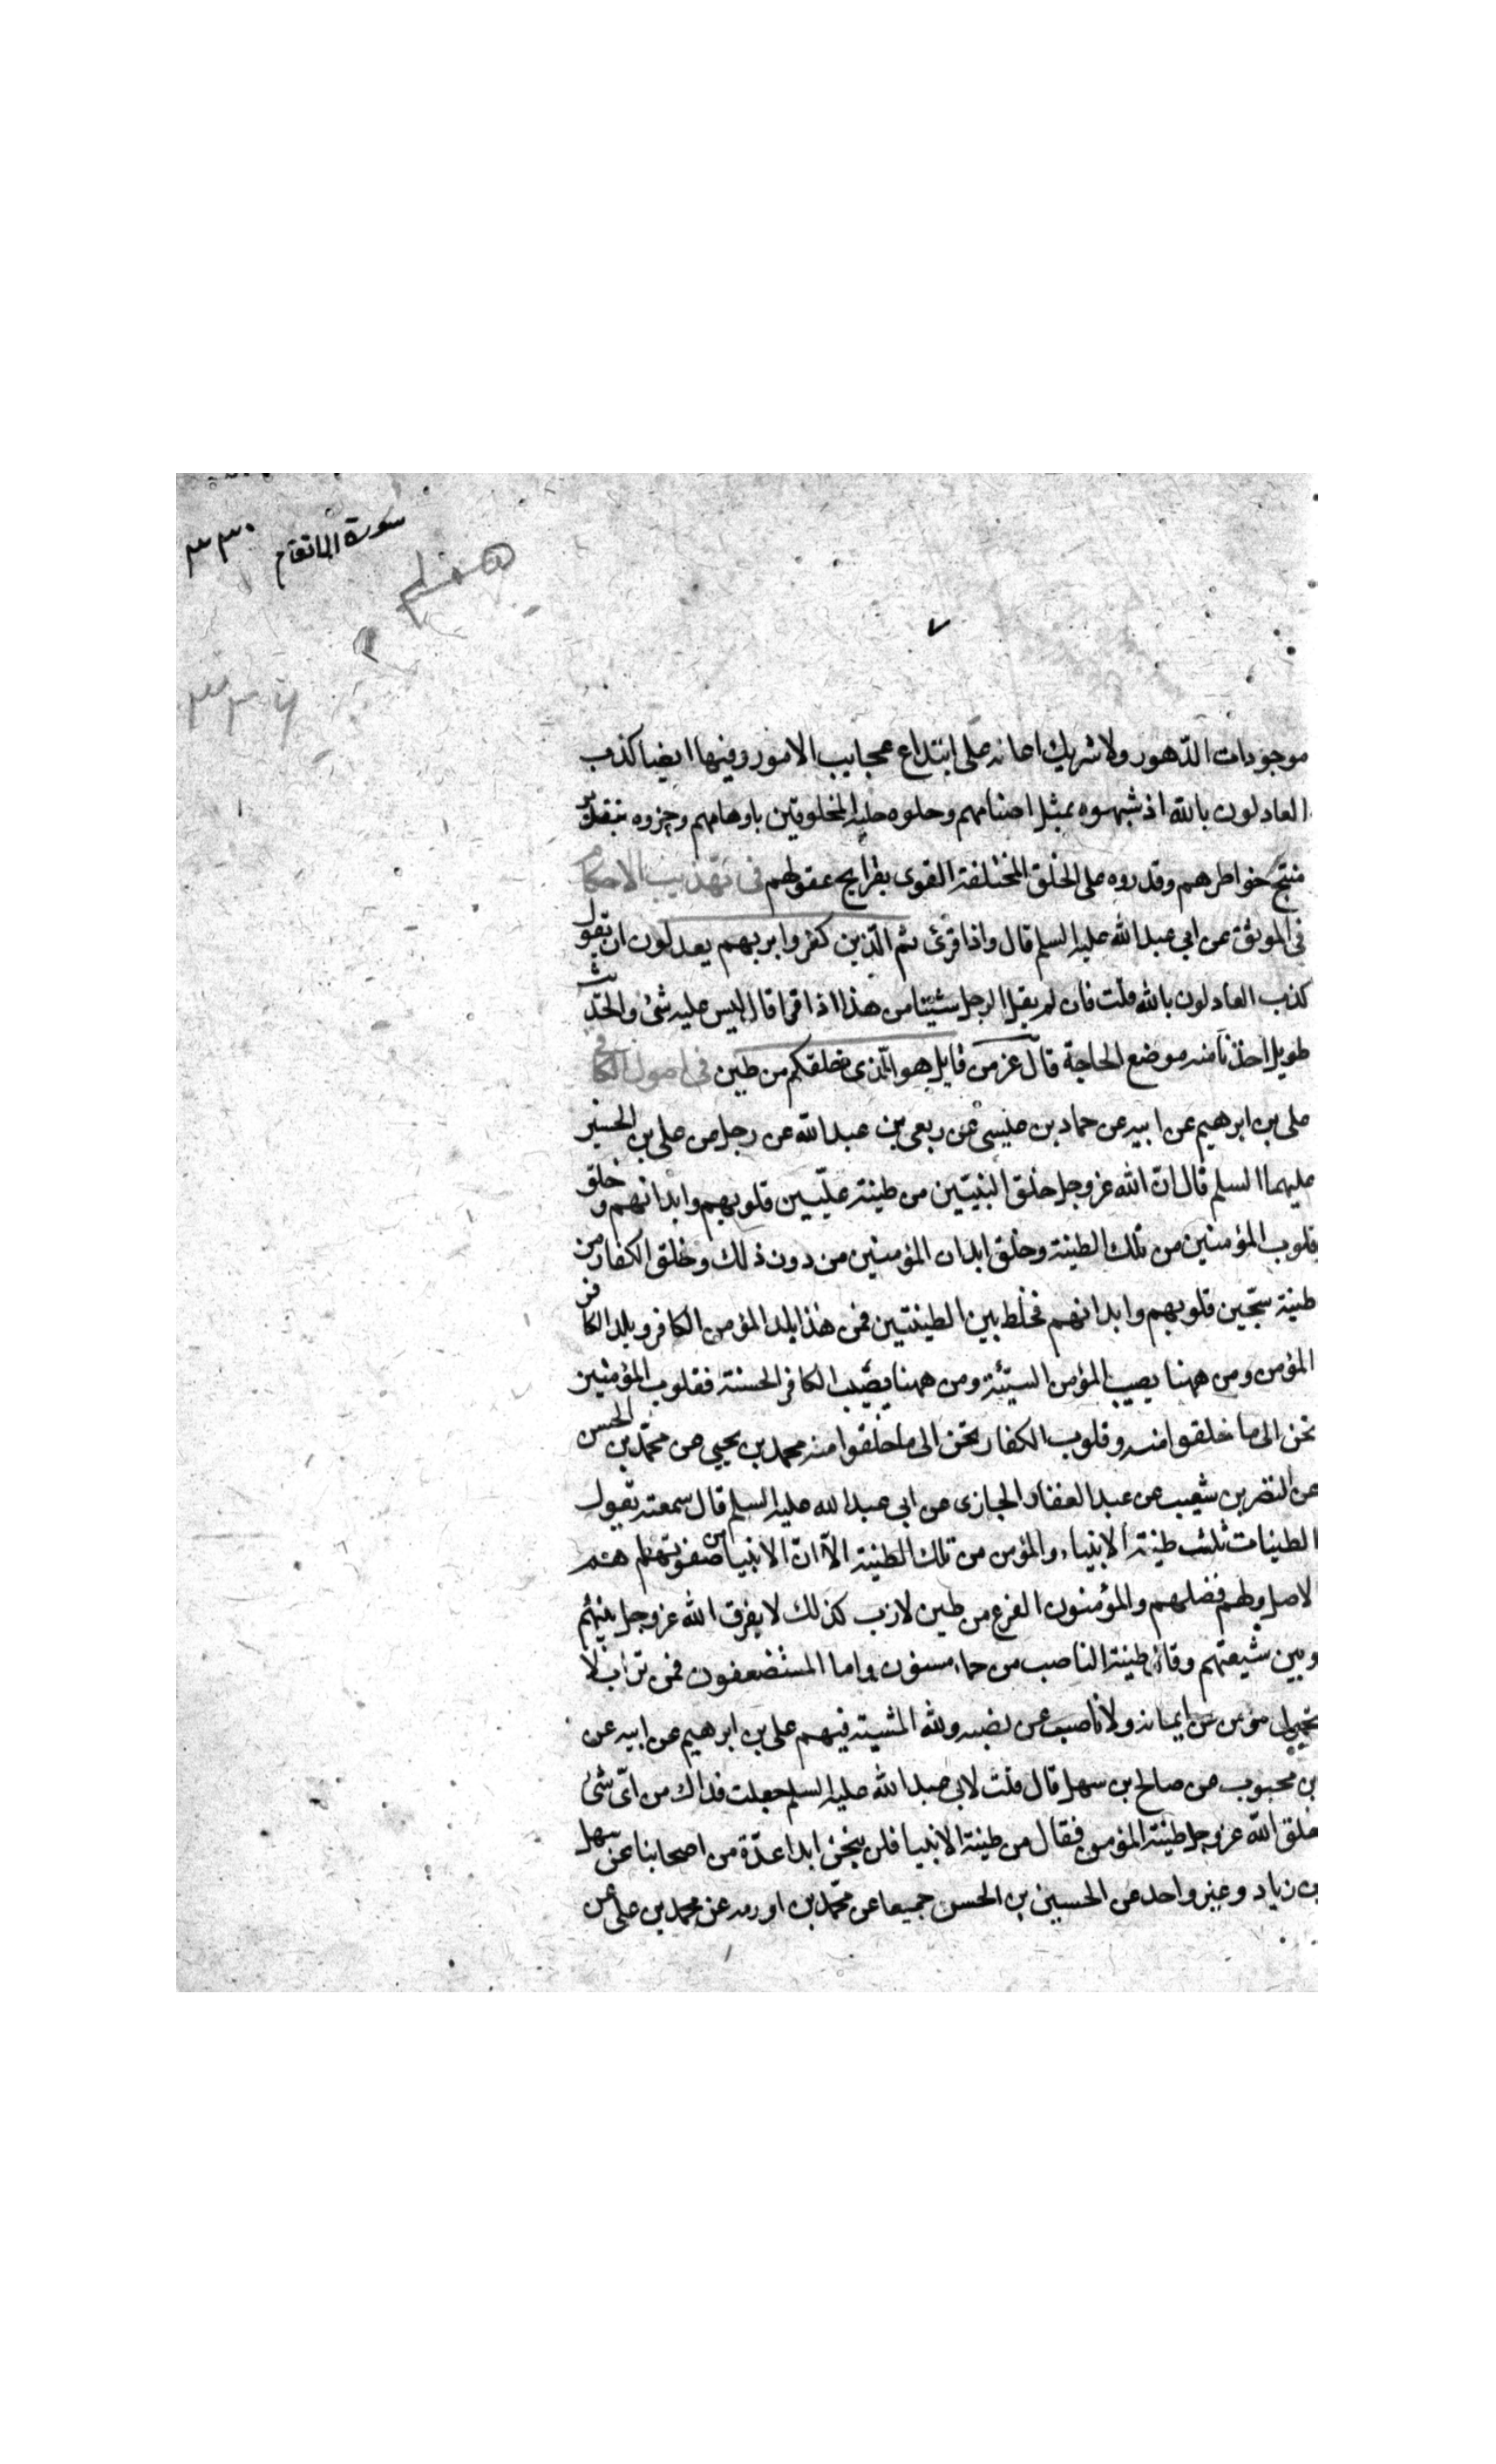 سورة الانعام ٣٣٠
موجودات الدّهور ولا شريك اعانه على ابتداع عجايب الامور وفيها ايضا كذب
العادلون بالله اذ شبهوه بمثل اصنامهم وحلوه حلية المخلوقين باوهامهم وجزوه بتقدير
منتج خواطرهم وقدروه على الخلق المختلفة القوى بقرايح عقولهم في تهذيب الاحكام
في الموثق عن ابي عبد الله عليه السلم قال واذا قرئ ثم الّذين كفروا بربهم يعدلون ان يقول
كذب العادلون بالله قلت فان لم يقل الرجل شيئا من هذا اذا قرا قال ليس عليه شئ والحديث
طويل اخذنا منه موضع الحاجة قال عز من قايل هو الّذى خلقكم من طين في اصول الكافي
على بن ابرهيم عن ابيه عن حماد بن عيسى عن ربعى بن عبد الله عن رجل عن على بن الحسين
عليهما السلم قال انّ الله عز وجل خلق النبيّين من طينة علّيين قلوبهم وابدانهم وخلق
قلوب المؤمنين من تلك الطينة وخلق ابدان المؤمنين من دون ذلك وخلق الكفار من
طينة سجّين قلوبهم وابدانهم فخلط بين الطينتين فمن هذا يلد المؤمن الكافر ويلد الكافر
المؤمن ومن ههنا يصيب المؤمن السيّئة ومن ههنا يصيب الكافر الحسنة فقلوب المؤمنين
تحن الى ما خلقوا منه وقلوب الكفار تحن الى ما خلقوا منه محمد بن يحيى عن محمّد بن الحسن
عن النضر بن شعيب عن عبد الغفار الجازى عن ابى عبد الله عليه السلم قال سمعته يقول
الطينات ثلث طينة الانبياء والمؤمن من تلك الطينة الّا انّ الانبيا من صفوتها هم
الاصل ولهم فضلهم والمؤمنون الفرع من طين لازب كذلك لا يفرق الله عز وجل بينهم
وبين شيعتهم وقال طينة الناصب من حماء مسنون واما المستضعفون فمن تراب لا
يتحول مؤمن عن ايمانه ولا ناصب عن نصبه ولله المشية فيهم على بن ابرهيم عن ابيه عن
بن محبوب عن صالح بن سهل قال قلت لابى عبد الله عليه السلم جعلت فداك من اىّ شئ
خلق الله عز وجل طينة المؤمن فقال من طينة الانبيا فلن ينجس ابدا عدّة من اصحابنا عن سهل
بن زياد وغير واحد عن الحسين بن الحسن جميعا عن محمّد بن اورمه عن محمد بن على عن